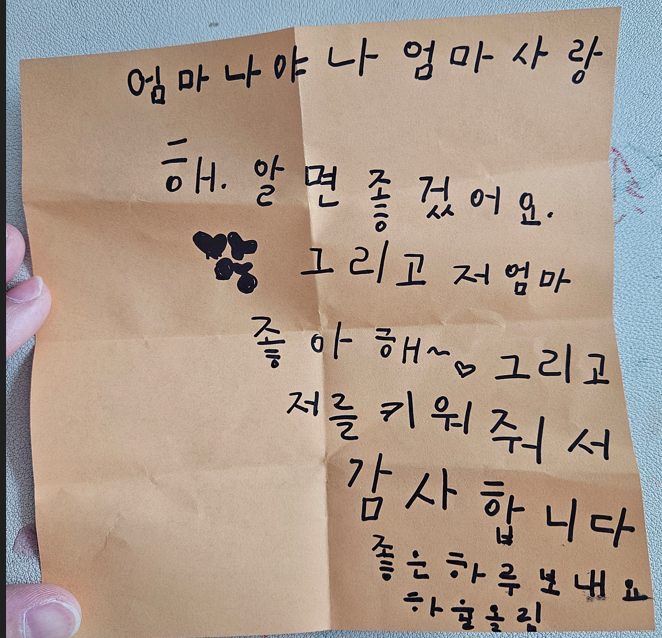 엄마 나야 나 엄마 사랑
해. 알면 좋겠어요.
그리고 저 엄마
좋아해~♡ 그리고
저를 키워줘서
감사합니다
좋은 하루 보내요
올림